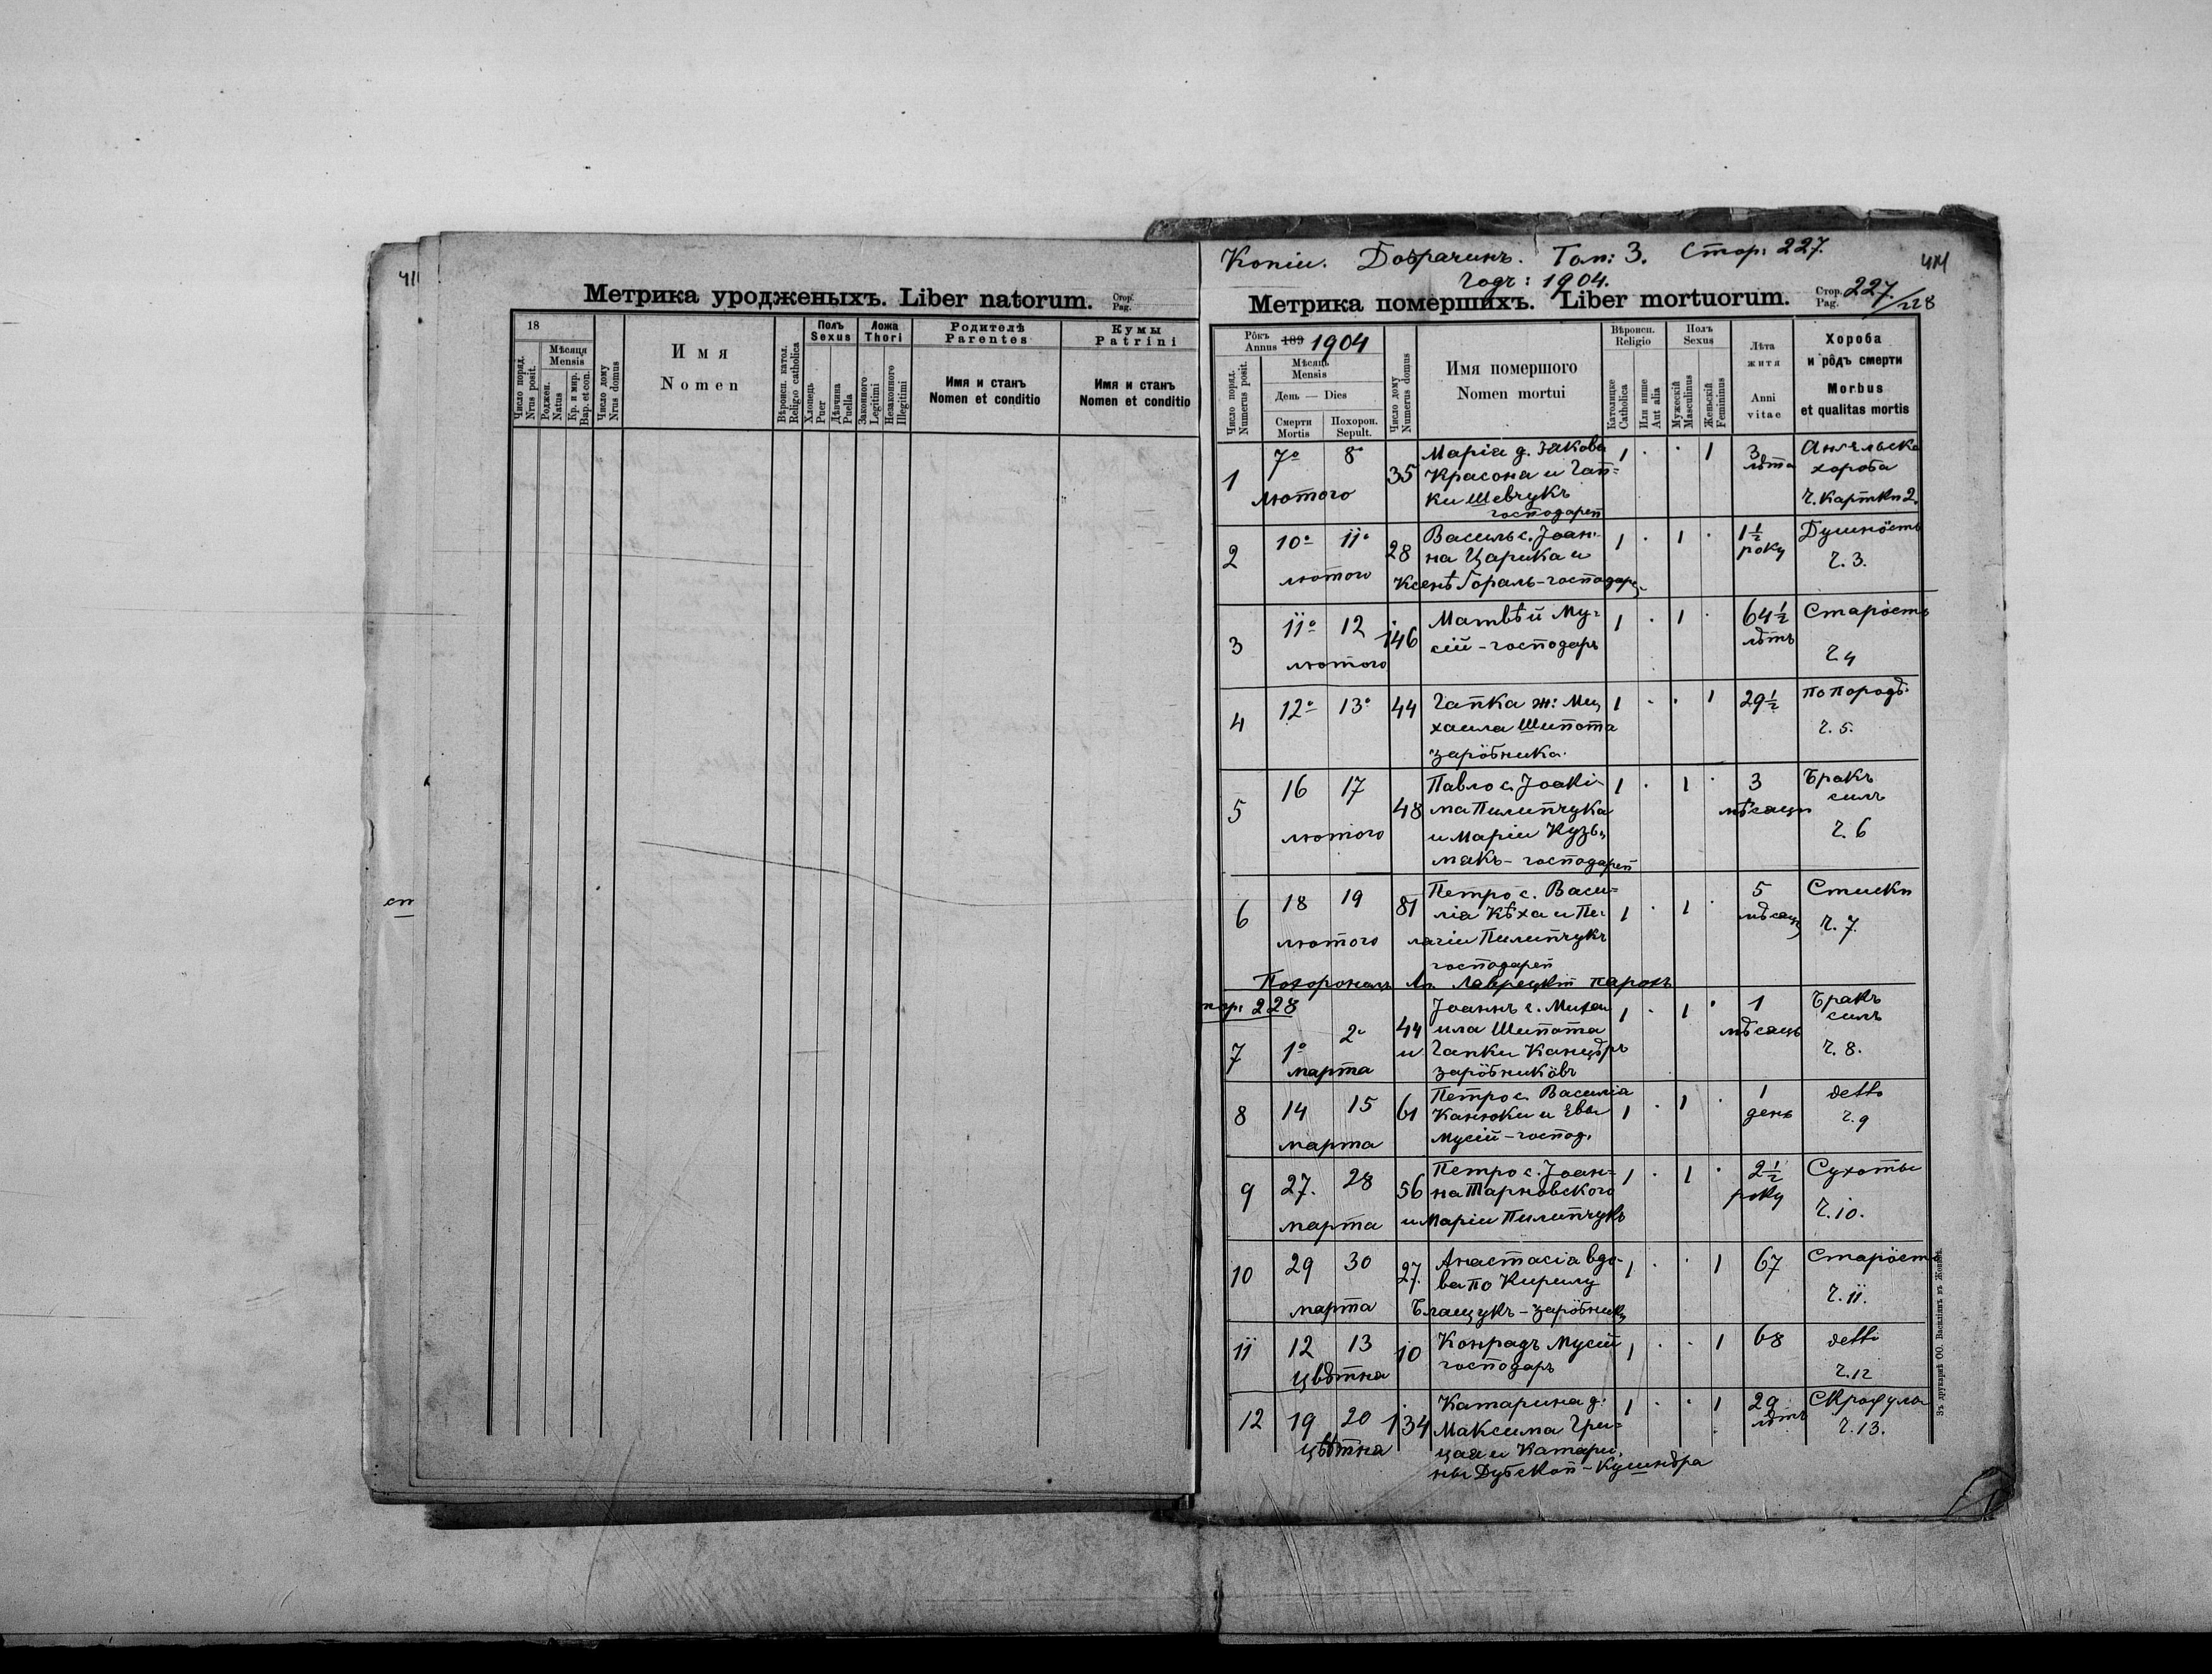 411
Метрика уродженыхъ. Liber natorum.
Стор.
Pag.
18
Число поряд.
Nrus posit.
Мѣсяця
Mensis
Роджен.
Natus
Кр. и мир.
Bap. et con.
Число дому
Nrus domus
Имя
Nomen
Вѣроисп. катол.
Religio catholica
Полъ
Sexus
Хлопець
Puer
Дѣвчина
Puella
Ложа
Thori
Законного
Legitimi
Незаконного
Illegitimi
Родителѣ
Parentes
Имя и станъ
Nomen et conditio
Кумы
Patrini
Имя и станъ
Nomen et conditio
Копіи. Бобрачинъ. Том: 3. Стор: 227.
Годъ: 1904.
Метрика помершихъ. Liber mortuorum.
Стор.
Pag.
227/228
Рôкъ
Annus 189 1904
Число поряд.
Numerus posit.
Мѣсяць
Mensis
День — Dies
Смерти
Mortis
Похорон.
Sepult.
Число дому
Numerus domus
Имя помершого
Nomen mortui
Вѣроисп.
Religio
Католицке
Catholica
Или инше
Aut alia
Полъ
Sexus
Мужескій
Masculinus
Женьскій
Femininus
Лѣта
житя
Anni
vitae
Хороба
и рôдъ смерти
Morbus
et qualitas mortis
1 7º 8º лютого 35 Марія д. Якова 1 · · 1 3 лѣта Ангельска
Красона и Гап= хороба
ки Шевчукъ Ч. Картки 2.
господарей
2 10º 11º лютого 28 Василь с. Іоан- 1 · 1 · 1½ року Душнôсть
на Царика и Ч. 3.
Ксенѣ Гораль - господар.
3 11º 12 лютого 146 Матвѣй Му- 1 · 1 · 64½ лѣтъ Старôсть
сій - господарь Ч. 4
4 12º 13º 44 Гапка ж: Ми- 1 · · 1 29½ по породѣ
хаила Шипота Ч. 5.
зарôбника.
5 16 17 лютого 48 Павло с. Іоакі- 1 · 1 · 3 мѣсяци Бракъ
ма Пилипчука силъ
и Маріи Кузь- Ч. 6
макъ - господарей
6 18 19 лютого 81 Петро с. Васи= 1 · 1 · 5 мѣсяц. Стиски
лія Кѣха и Пе- Ч. 7.
лагіи Пилипчукъ
господарей
Похоронилъ Лаврецкій парохъ
стор: 228
7 1º 2º марта 44 Іоаннъ с. Миха 1 · 1 · 1 мѣсяць Бракъ
ила Шипота силъ
и Гапки Канцѣръ Ч. 8.
зарôбникôвъ
8 14 15 марта 61 Петро с. Василія 1 · 1 · 1 день detto
Канюки и Евы Ч. 9
Мусій - господ.
9 27. 28 марта 56 Петро с. Іоан= 1 · 1 · 2½ року Сухоты
на Тарновского Ч. 10.
и Маріи Пилипчукъ
10 29 30 марта 27. Анастасія вдо- 1 · · 1 67 Старôсть
ва по Кирилу Ч. 11.
Блащукъ - зарôбник.
11 12 13 цвѣтня 10 Конрадъ Мусій 1 · · 1 68 detto
господарь Ч. 12
12 19 20 цвѣтня 134 Катарина д. 1 · · 1 29 лѣтъ Скрофулы
Максима Гри= Ч. 13.
цая и Катари-
ны Дубской - Кушнѣра
Зъ друкарнѣ ОО. Василіянъ въ Жовквѣ.